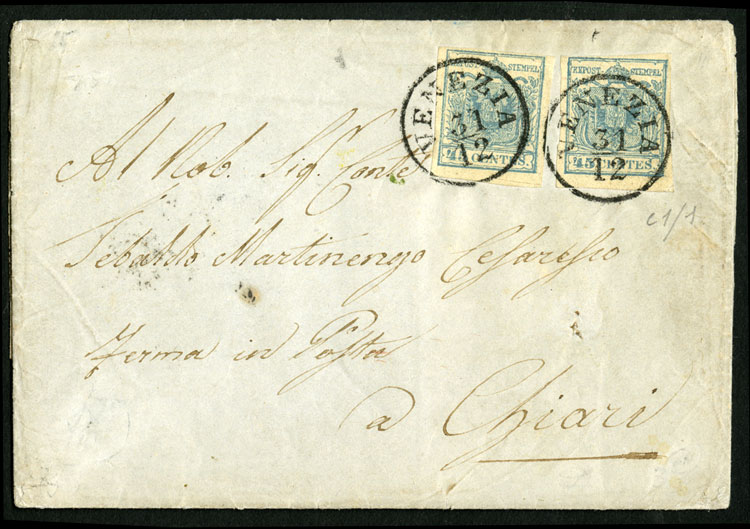 KKK POST STEMPEL
KKK POST STEMPEL
VENEZIA
31
12
45 CENTES
VENEZIA
31
12
45 CENTES
Al Nob. Sig. Conte
Tebaldo Martinengo Cesaresco
ferma in Posta
a Chiari
c1/1.